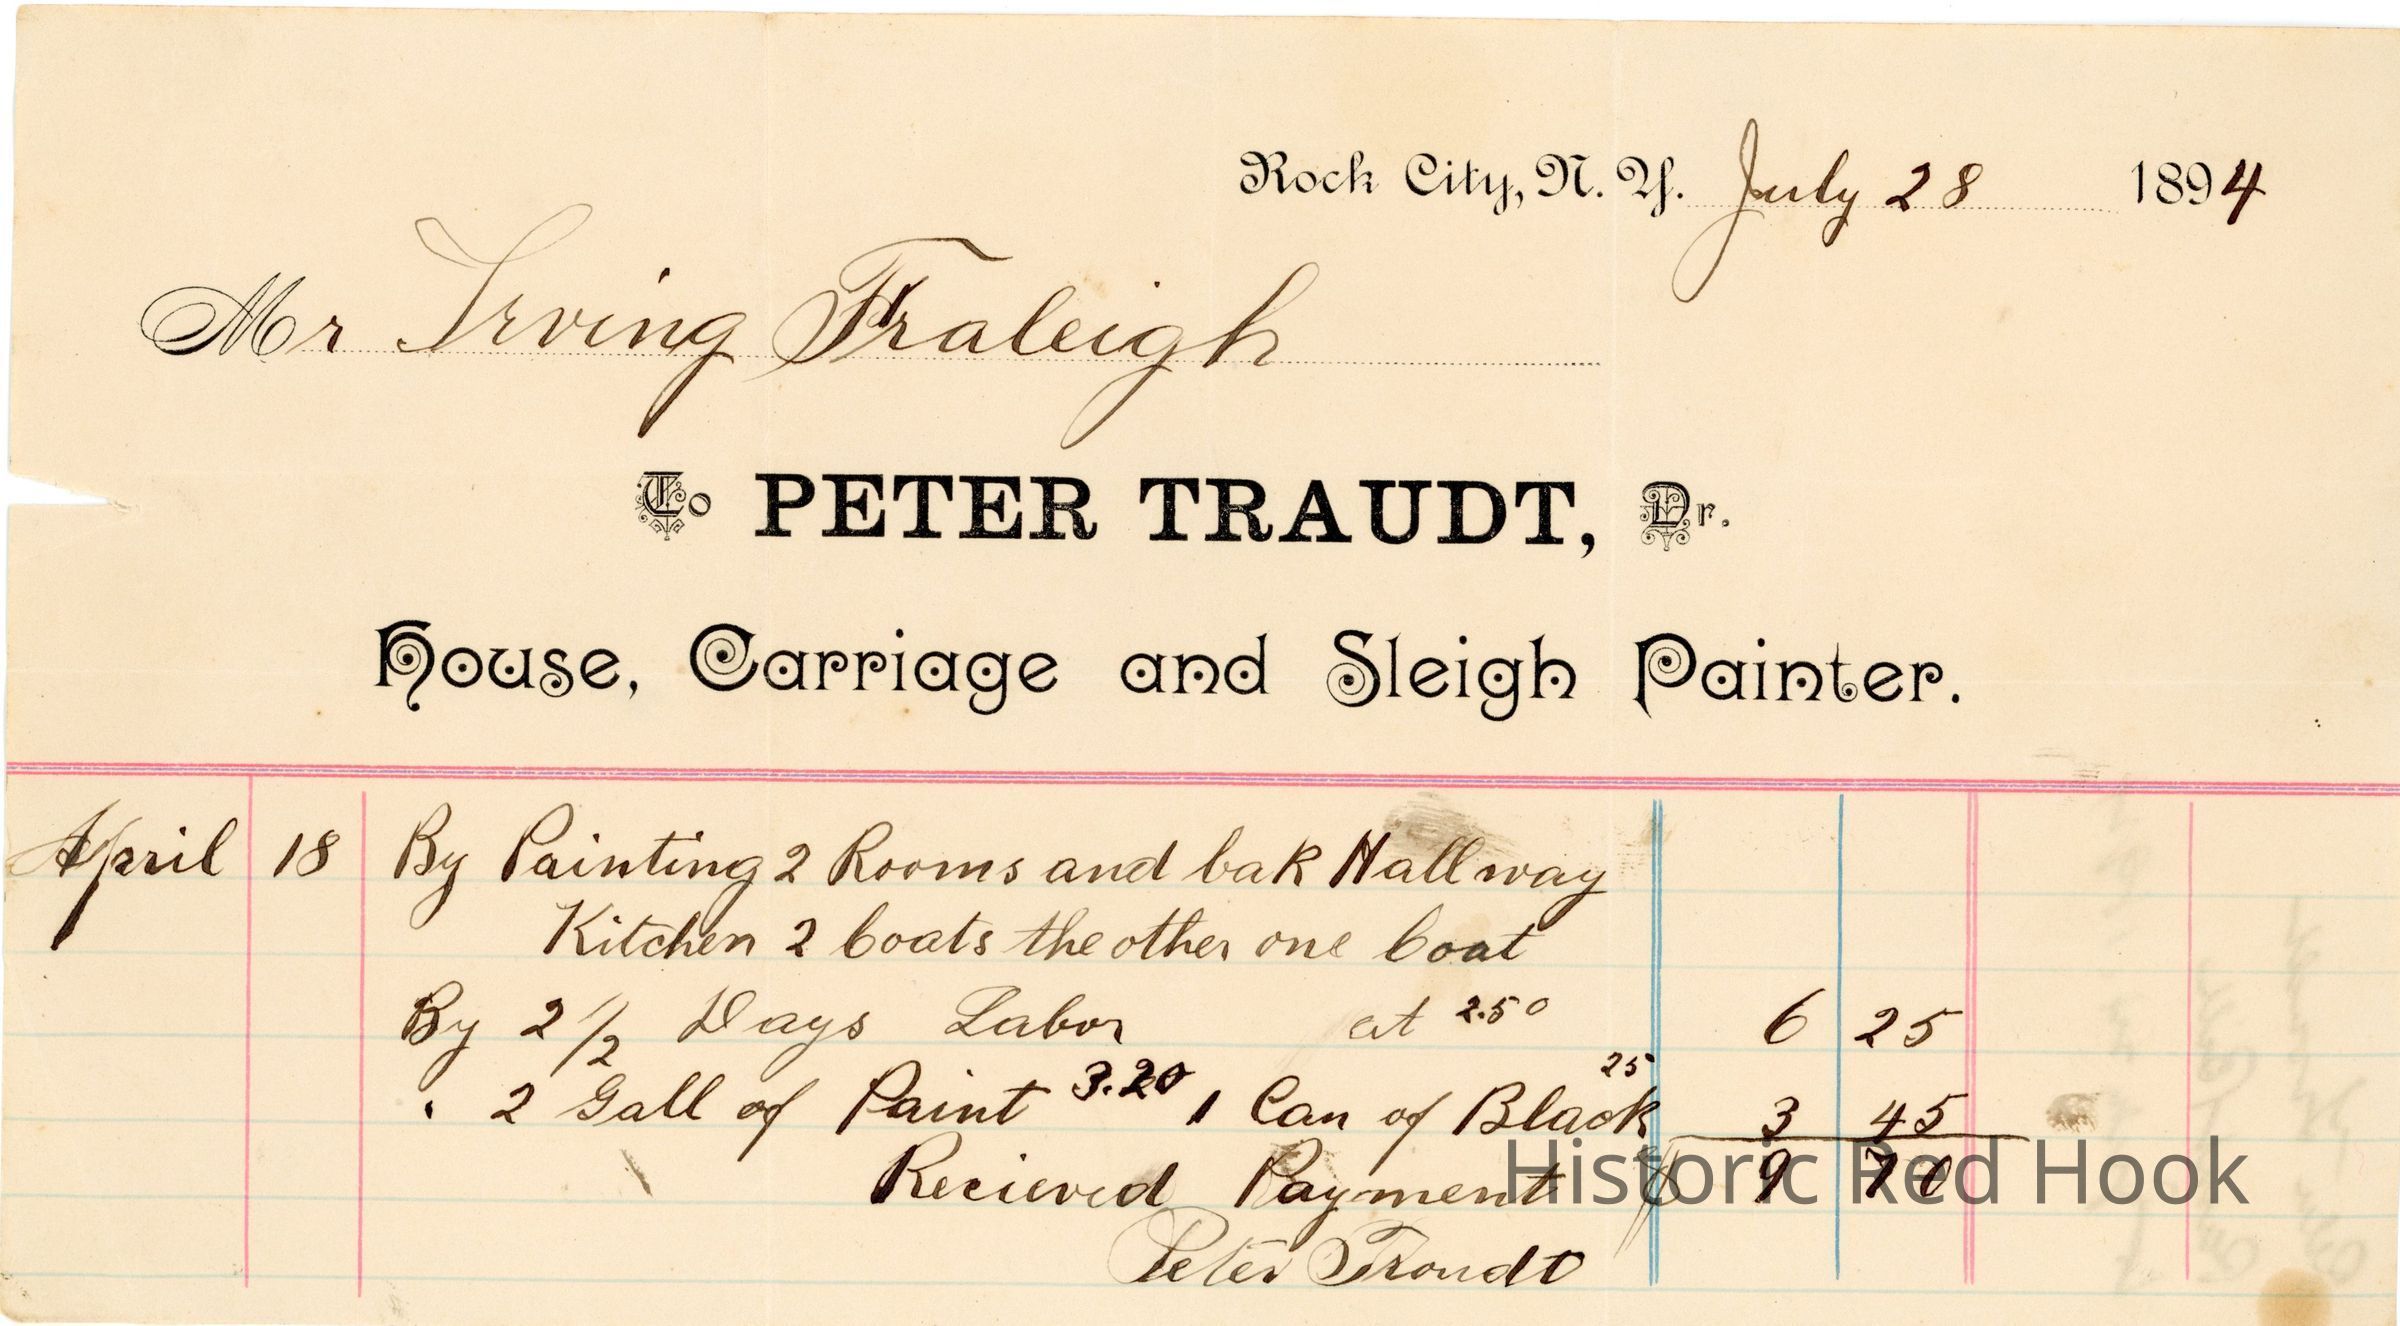 Rock City, N. Y. July 28 1894
Mr Irving Fraleigh
To PETER TRAUDT, Dr.
House, Carriage and Sleigh Painter.
April 18 By Painting 2 Rooms and bak Hallway
Kitchen 2 boats the other one boat
By 2 1/2 Days Labor at 2.50 6 25
" 2 Gall of Paint 3.20 1 Can of Black 25 3 45
Recieved Payment $ 9 70
Peter Troudt
Historic Red Hook